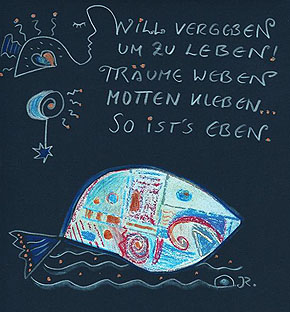 WILL VERGEBEN
UM ZU LEBEN!
TRÄUME WEBEN
MOTTEN KLEBEN...
SO IST'S EBEN
R.